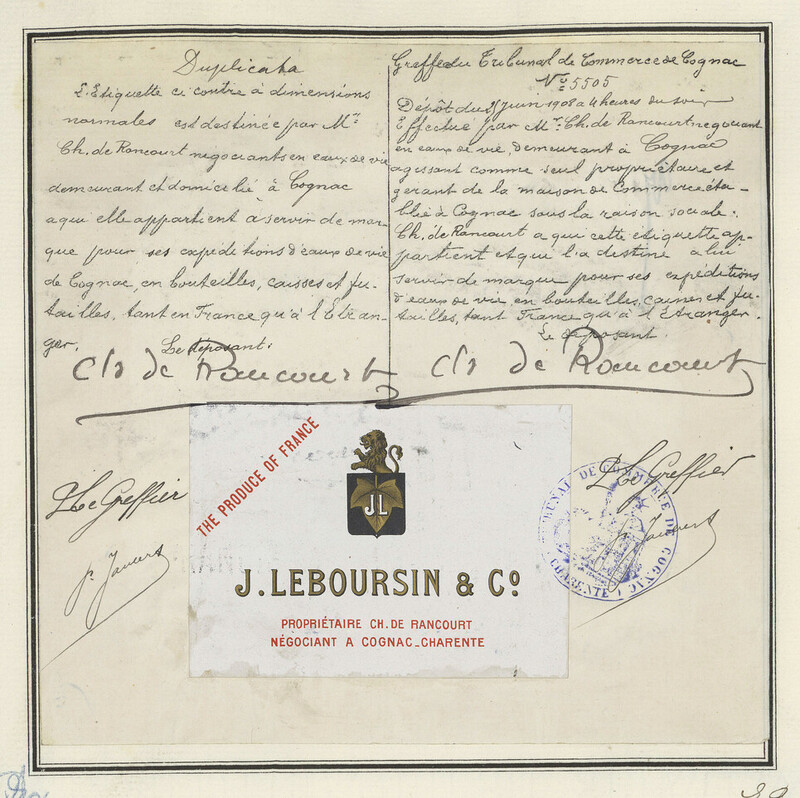 Duplicata
L'Etiquette ci contre à dimensions
normales est destinée par Mr.
Ch. de Rancourt negociants en eaux de vie
demeurant et domicilié à Cognac
a qui elle appartient à servir de mar-
que pour ses expéditions d'eaux de vie
de Cognac, en bouteilles, caisses et fu-
tailles, tant en France qu'à l'Etran-
ger.
Le déposant:
Ch de Rancourt
Greffe du Tribunal de Commerce de Cognac
No 5505
Dépôt du juin 1908 à 4 heures du soir
Effectué par Mr. Ch. de Rancourt negociant
en eaux de vie, demeurant à Cognac
agissant comme seul propriétaire et
gérant de la maison de Commerce éta-
blie à Cognac sous la raison sociale:
Ch. de Rancourt a qui cette étiquette ap-
partient et qui l'a destine a lui
servir de marque pour ses expéditions
d'eaux de vie, en bouteilles, caisses et fu-
tailles, tant France qu'à l'Etranger.
Le déposant
Ch de Rancourt
THE PRODUCE OF FRANCE
JL
J. LEBOURSIN & Co
PROPRIÉTAIRE CH. DE RANCOURT
NÉGOCIANT A COGNAC_CHARENTE
Le Greffier
Le Greffier
TRIBUNAL DE COMMERCE DE COGNAC
CHARENTE